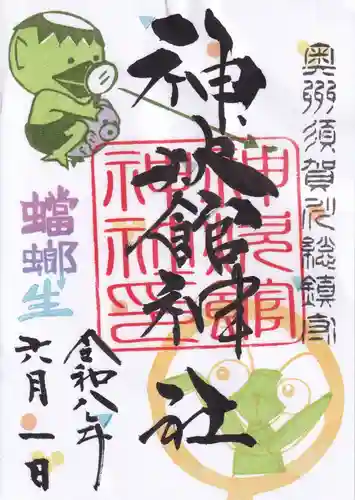 奥州須賀川総鎮守
神炊館神社
神炊館
神社印
令和八年
六月一日
蟷螂生